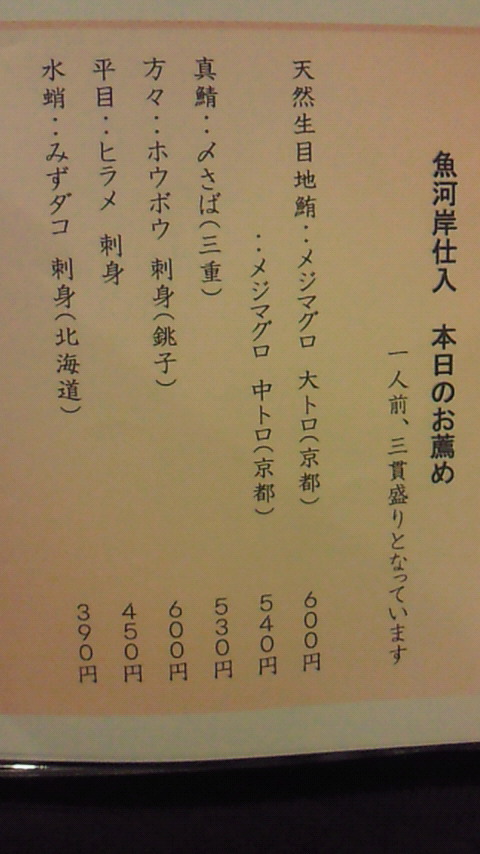 魚河岸仕入　本日のお薦め
一人前、三貫盛りとなっています
天然生目地鮪：メジマグロ　大トロ（京都）　600円
：メジマグロ　中トロ（京都）　540円
真鯖：〆さば（三重）　530円
方々：ホウボウ　刺身（銚子）　600円
平目：ヒラメ　刺身　450円
水蛸：みずダコ　刺身（北海道）　390円